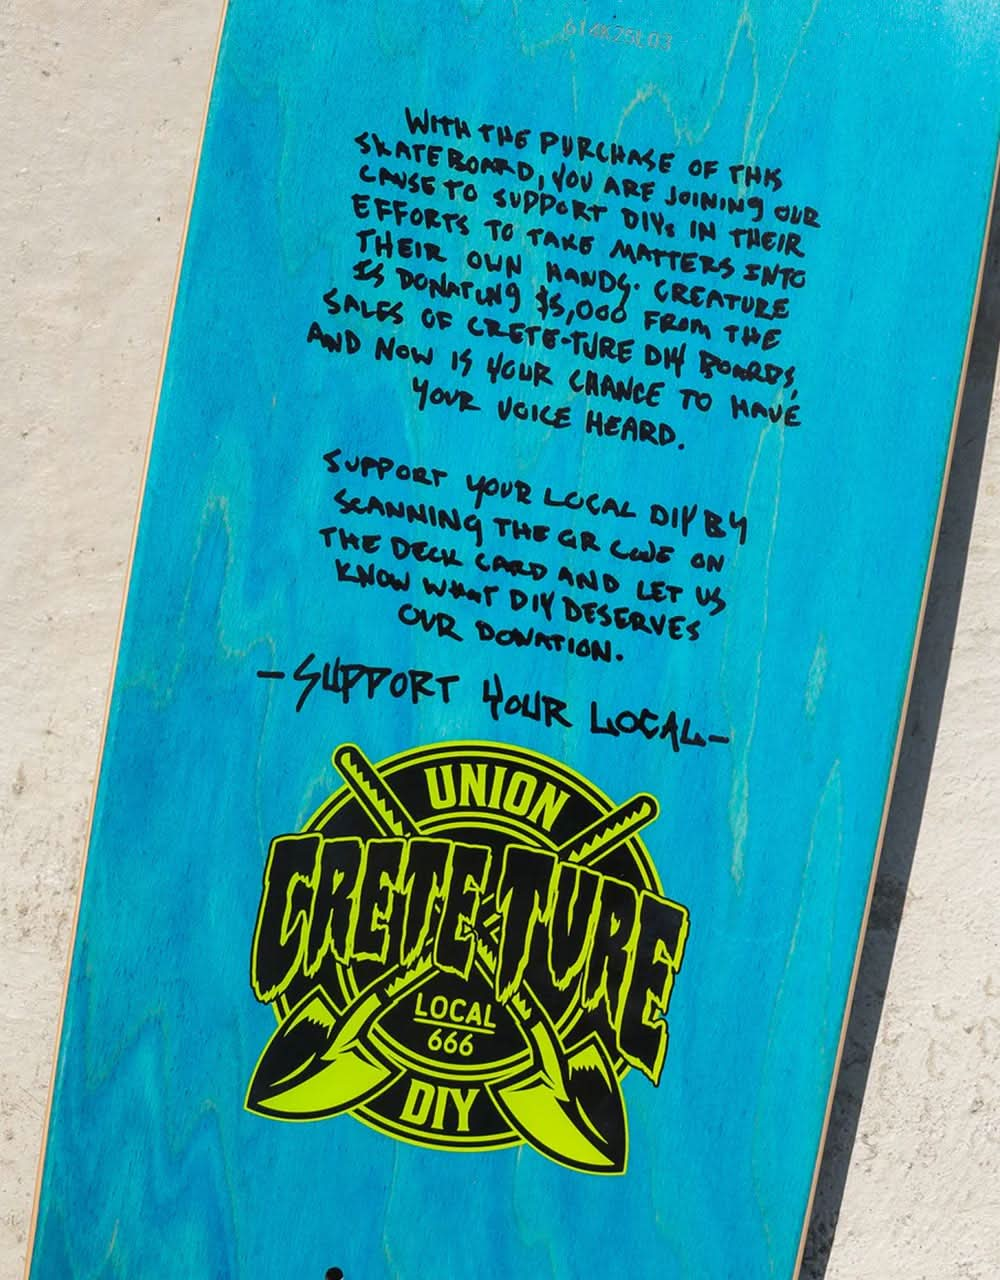 614K25L03
WITH THE PURCHASE OF THIS
SKATEBOARD, YOU ARE JOINING OUR
CAUSE TO SUPPORT DIYs IN THEIR
EFFORTS TO TAKE MATTERS INTO
THEIR OWN HANDS. CREATURE
IS DONATING $5,000 FROM THE
SALES OF CRETE-TURE DIY BOARDS,
AND NOW IS YOUR CHANCE TO HAVE
YOUR VOICE HEARD.
SUPPORT YOUR LOCAL DIY BY
SCANNING THE QR CODE ON
THE DECK CARD AND LET US
KNOW WHAT DIY DESERVES
OUR DONATION.
-SUPPORT YOUR LOCAL-
UNION
CRETE-TURE
LOCAL
666
DIY